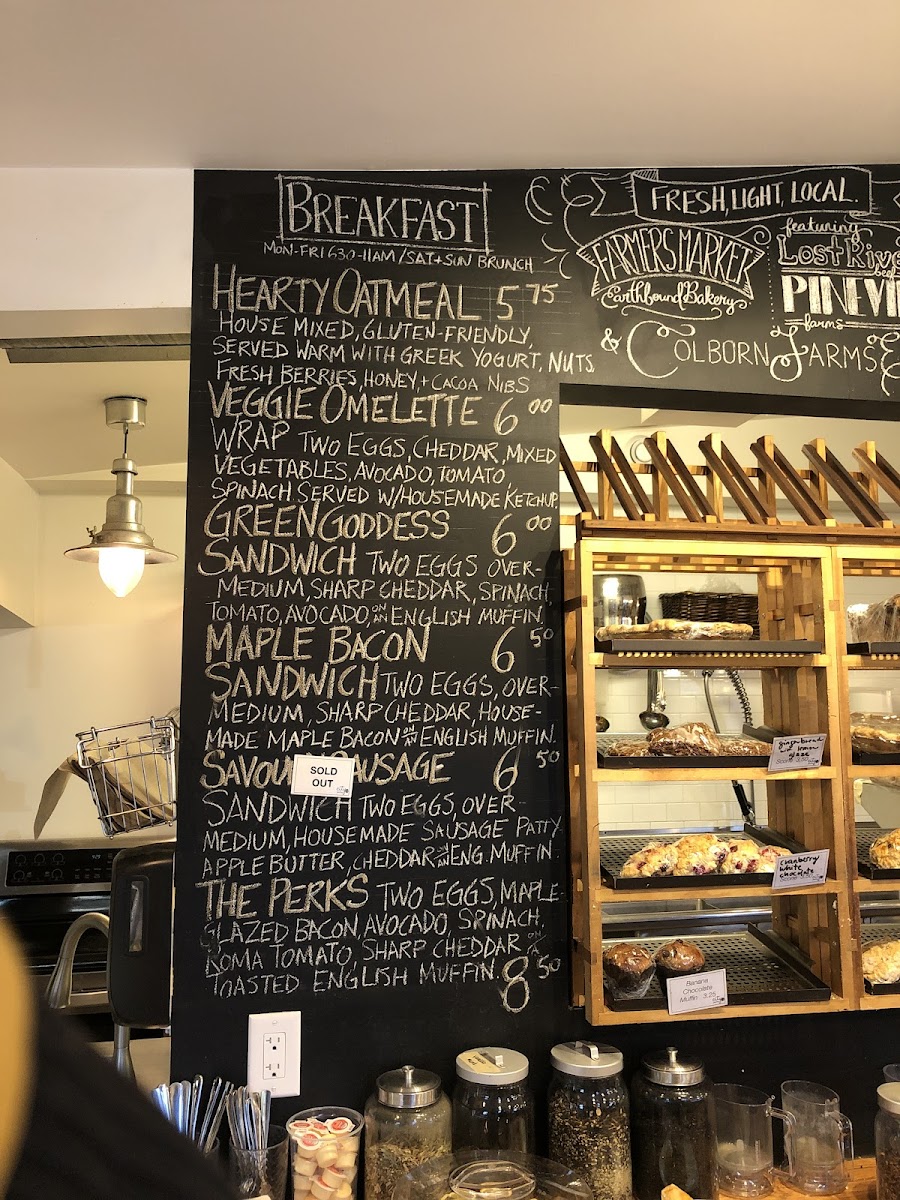 BREAKFAST
MON-FRI 630-11AM / SAT+SUN BRUNCH
HEARTY OATMEAL 5 75
HOUSE MIXED, GLUTEN-FRIENDLY,
SERVED WARM WITH GREEK YOGURT, NUTS
FRESH BERRIES, HONEY, + CACOA NIBS
VEGGIE OMELETTE 6 00
WRAP TWO EGGS, CHEDDAR, MIXED
VEGETABLES, AVOCADO, TOMATO,
SPINACH SERVED W/HOUSEMADE KETCHUP.
GREEN GODDESS 6 00
SANDWICH TWO EGGS OVER-
MEDIUM, SHARP CHEDDAR, SPINACH,
TOMATO, AVOCADO, ON AN ENGLISH MUFFIN.
MAPLE BACON 6 50
SANDWICH TWO EGGS, OVER-
MEDIUM, SHARP CHEDDAR, HOUSE-
MADE MAPLE BACON ON AN ENGLISH MUFFIN.
SAVOURY SAUSAGE 6 50
SOLD
OUT
SANDWICH TWO EGGS, OVER-
MEDIUM, HOUSEMADE SAUSAGE PATTY
APPLE BUTTER, CHEDDAR ON AN ENG. MUFFIN.
THE PERKS TWO EGGS, MAPLE-
GLAZED BACON, AVOCADO, SPINACH,
ROMA TOMATO, SHARP CHEDDAR ON A
TOASTED ENGLISH MUFFIN. 8 50
FRESH, LIGHT, LOCAL.
FARMERS MARKET
Earthbound Bakery
featuring
Lost Rive
PINEVI
farms
& COLBORN FARMS
gingerbread
w/ lemon
glaze
cranberry
white
chocolate
Banana
Chocolate
Muffin 3.25